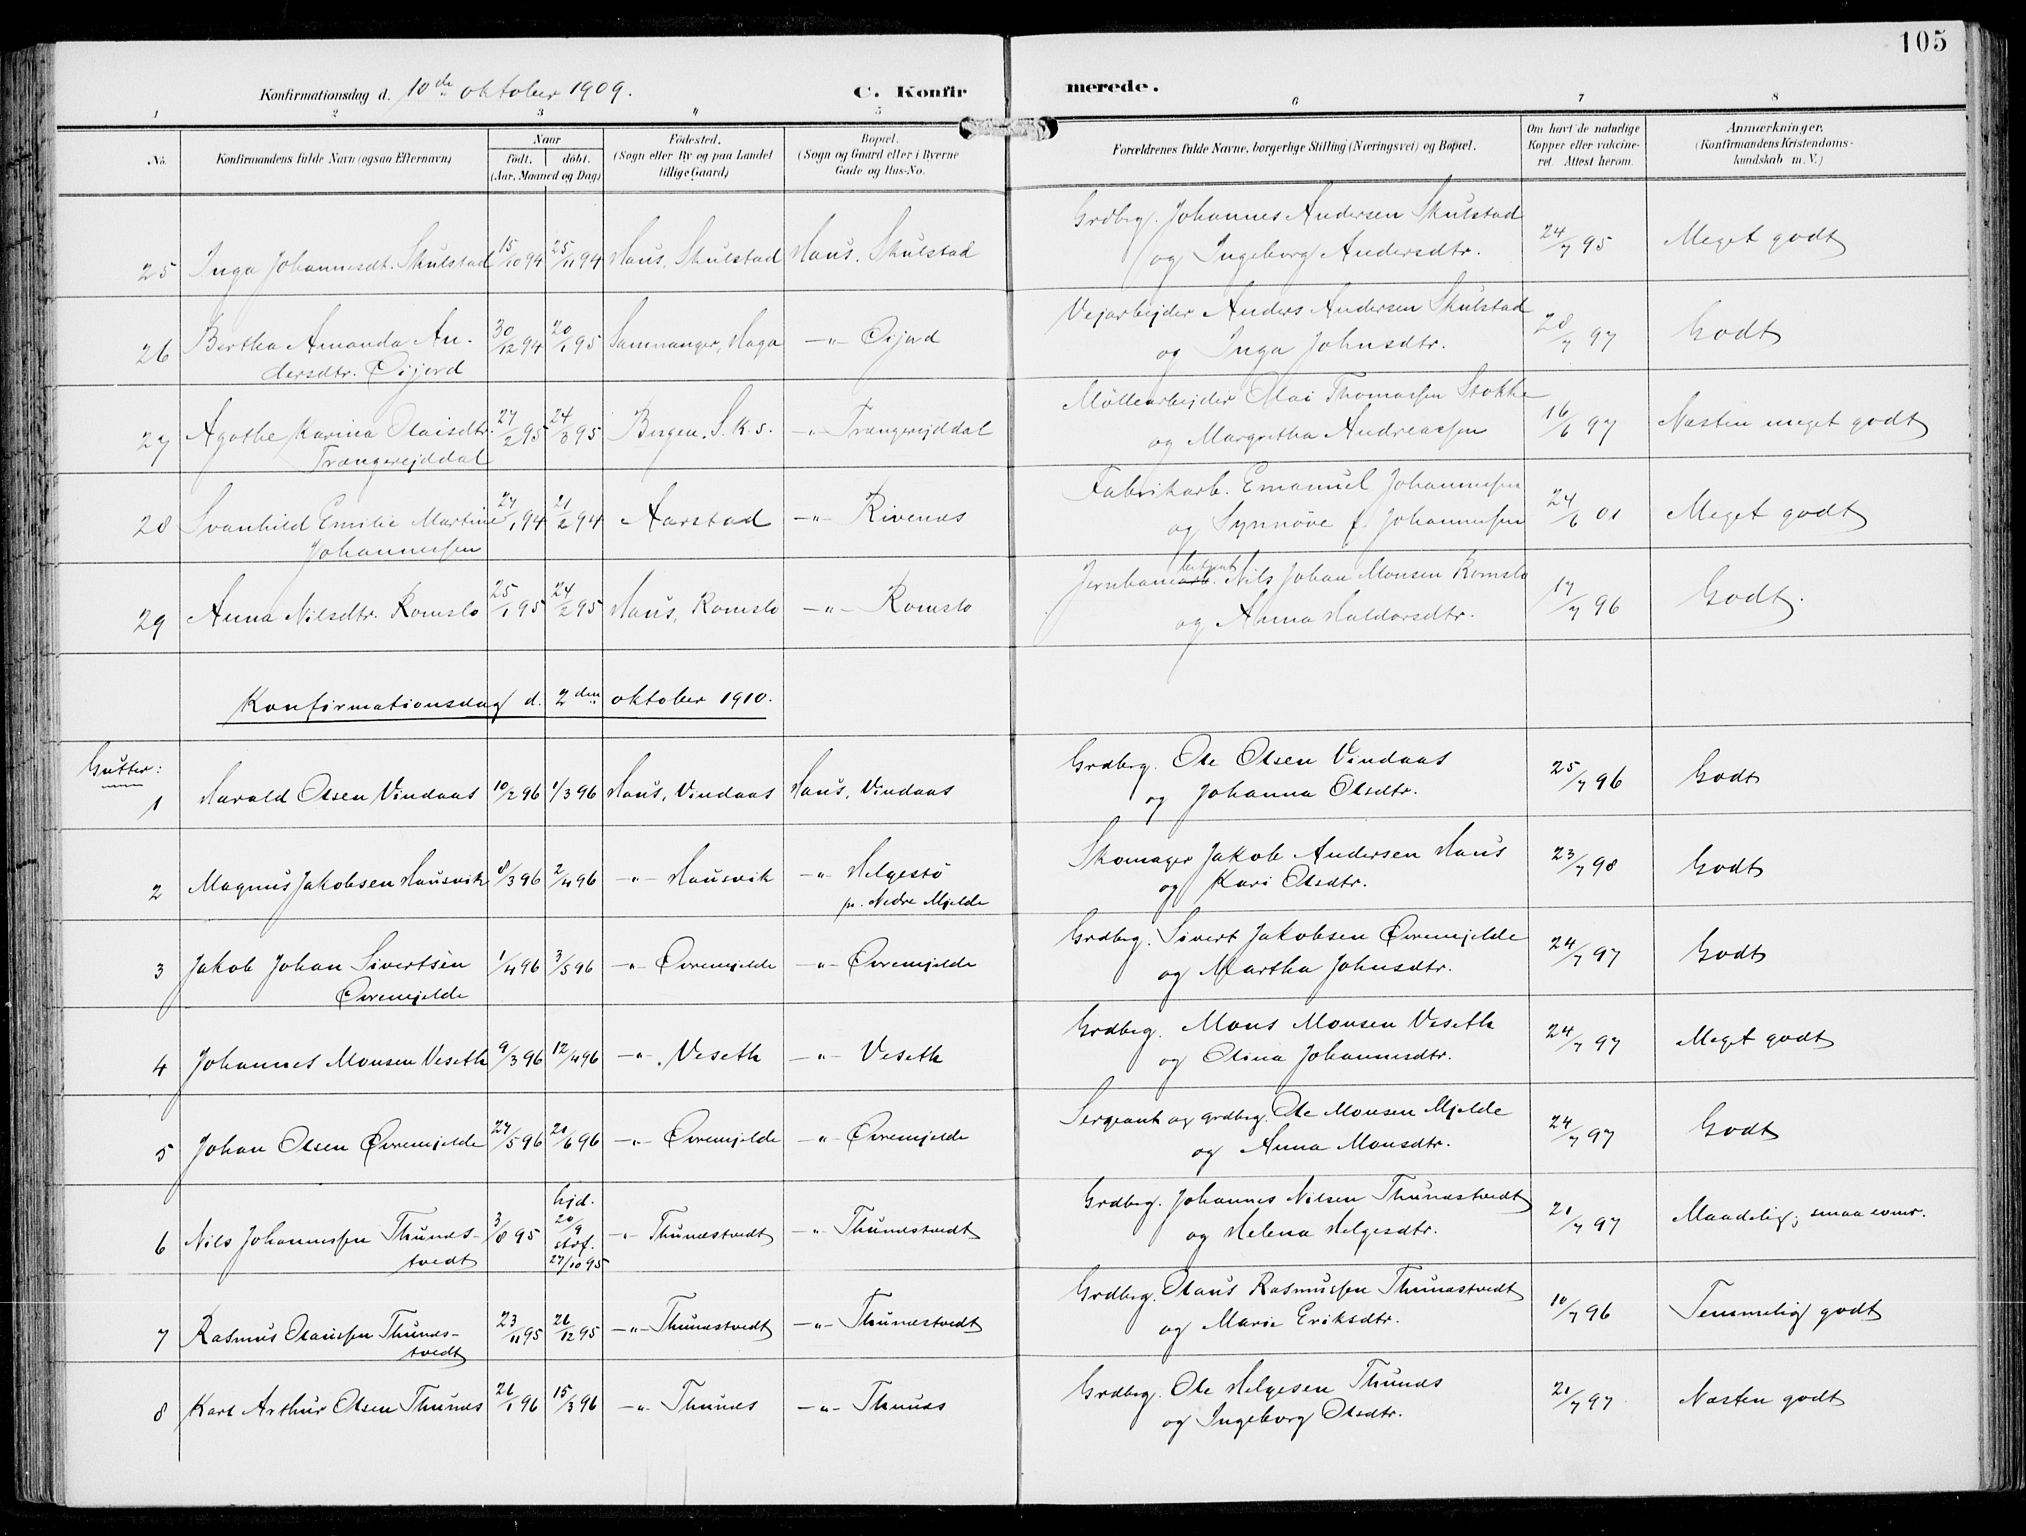 105
Konfirmationsdag d. 10de oktober 1909.
C. Konfir
merede.
1 2 3 4 5 6 7 8
No.
Konfirmandens fulde Navn (ogsaa Efternavn)
Naar
født. døbt.
(Aar, Maaned og Dag)
Fødested.
(Sogn eller By og paa Landet
tillige Gaard)
Bopæl.
(Sogn og Gaard eller i Byerne
Gade og Hus-No.
Forældrenes fulde Navne, borgerlige Stilling (Næringsvei) og Bopæl.
Om havt de naturlige
Kopper eller vakcine-
ret. Attest herom.
Anmærkninger.
(Konfirmandens Kristendoms-
kundskab m. V.)
25 Inga Johannesdt. Skulstad 15/10 94 25/11 94 Haus, Skulstad Haus, Skulstad
Grdbrg. Johannes Andersen Skulstad
og Ingeborg Andersdtr. 24/7 95 Meget godt
26 Bertha Amanda An-
dersdtr. Øijord 30/12 94 20/1 95 Samnanger, Haga -"- Øijord
Vejarbejder Anders Andersen Skulstad
og Inga Johnsdtr. 28/7 97 Godt
27 Agathe Karina Olaisdtr.
Trængerejddal 27/2 95 24/3 95 Bergen, S.k.s. -"- Trængerejddal
Møllearbejder Olai Thomassen Stokke
og Margretha Andreassen 16/6 97 Næsten meget godt
28 Svanhild Emilie Martine
Johannessen 27/1 94 21/2 94 Aarstad -"- Rivenæs
Fabrikarb. Emanuel Johannessen
og Synnøve f. Johannessen 24/6 01 Meget godt
29 Anna Nilsdtr. Romslo 25/1 95 24/2 95 Haus, Romslo -"- Romslo
Jernbanearb. Nils Johan Monsen Romslo
og Anna Haldorsdtr. 17/7 96 Godt.
Konfirmationsdag d. 2den oktober 1910.
Gutter:
1 Harald Olsen Vindaas 10/2 96 1/3 96 Haus, Vindaas Haus, Vindaas
Grdbrg. Ole Olsen Vindaas
og Johanna Olsdtr. 25/7 96 Godt
2 Magnus Jakobsen Hausvik 8/3 96 2/4 96 -"- Hausvik -"- Helgestø
p. Nedre Mjelde
Skomager Jakob Andersen Haus
og Kari Olsdtr. 23/7 98 Godt
3 Jakob Johan Sivertsen
Øvremjelde 1/4 96 3/5 96 -"- Øvremjelde -"- Øvremjelde
Grdbrg. Sivert Jakobsen Øvremjelde
og Martha Johnsdtr. 24/7 97 Godt
4 Johannes Monsen Veseth 9/3 96 12/4 96 -"- Veseth -"- Veseth
Grdbrg. Mons Monsen Veseth
og Olina Johannesdtr. 24/7 97 Meget godt
5 Johan Olsen Øvremjelde 27/5 96 20/6 96 -"- Øvremjelde -"- Øvremjelde
Sergeant og grdbrg. Ole Monsen Mjelde
og Anna Monsdtr. 24/7 97 Godt
6 Nils Johannessen Thunæs-
tvedt 3/8 95 hjd. 20/9 stof. 27/10 95 -"- Thunæstvedt -"- Thunæstvedt
Grdbrg. Johannes Nilsen Thunæstvedt
og Helena Helgesdtr. 21/7 97 Maadelig; smaa evner.
7 Rasmus Olaussen Thunæs-
tvedt 23/11 95 26/12 95 -"- Thunæstvedt -"- Thunæstvedt
Grdbrg. Olaus Rasmussen Thunæstvedt
og Marie Eriksdtr. 10/7 96 Temmelig godt
8 Karl Arthur Olsen Thunæs 26/1 96 15/3 96 -"- Thunæs -"- Thunæs
Grdbrg. Ole Helgesen Thunæs
og Ingeborg Olsdtr. 21/7 97 Næsten godt